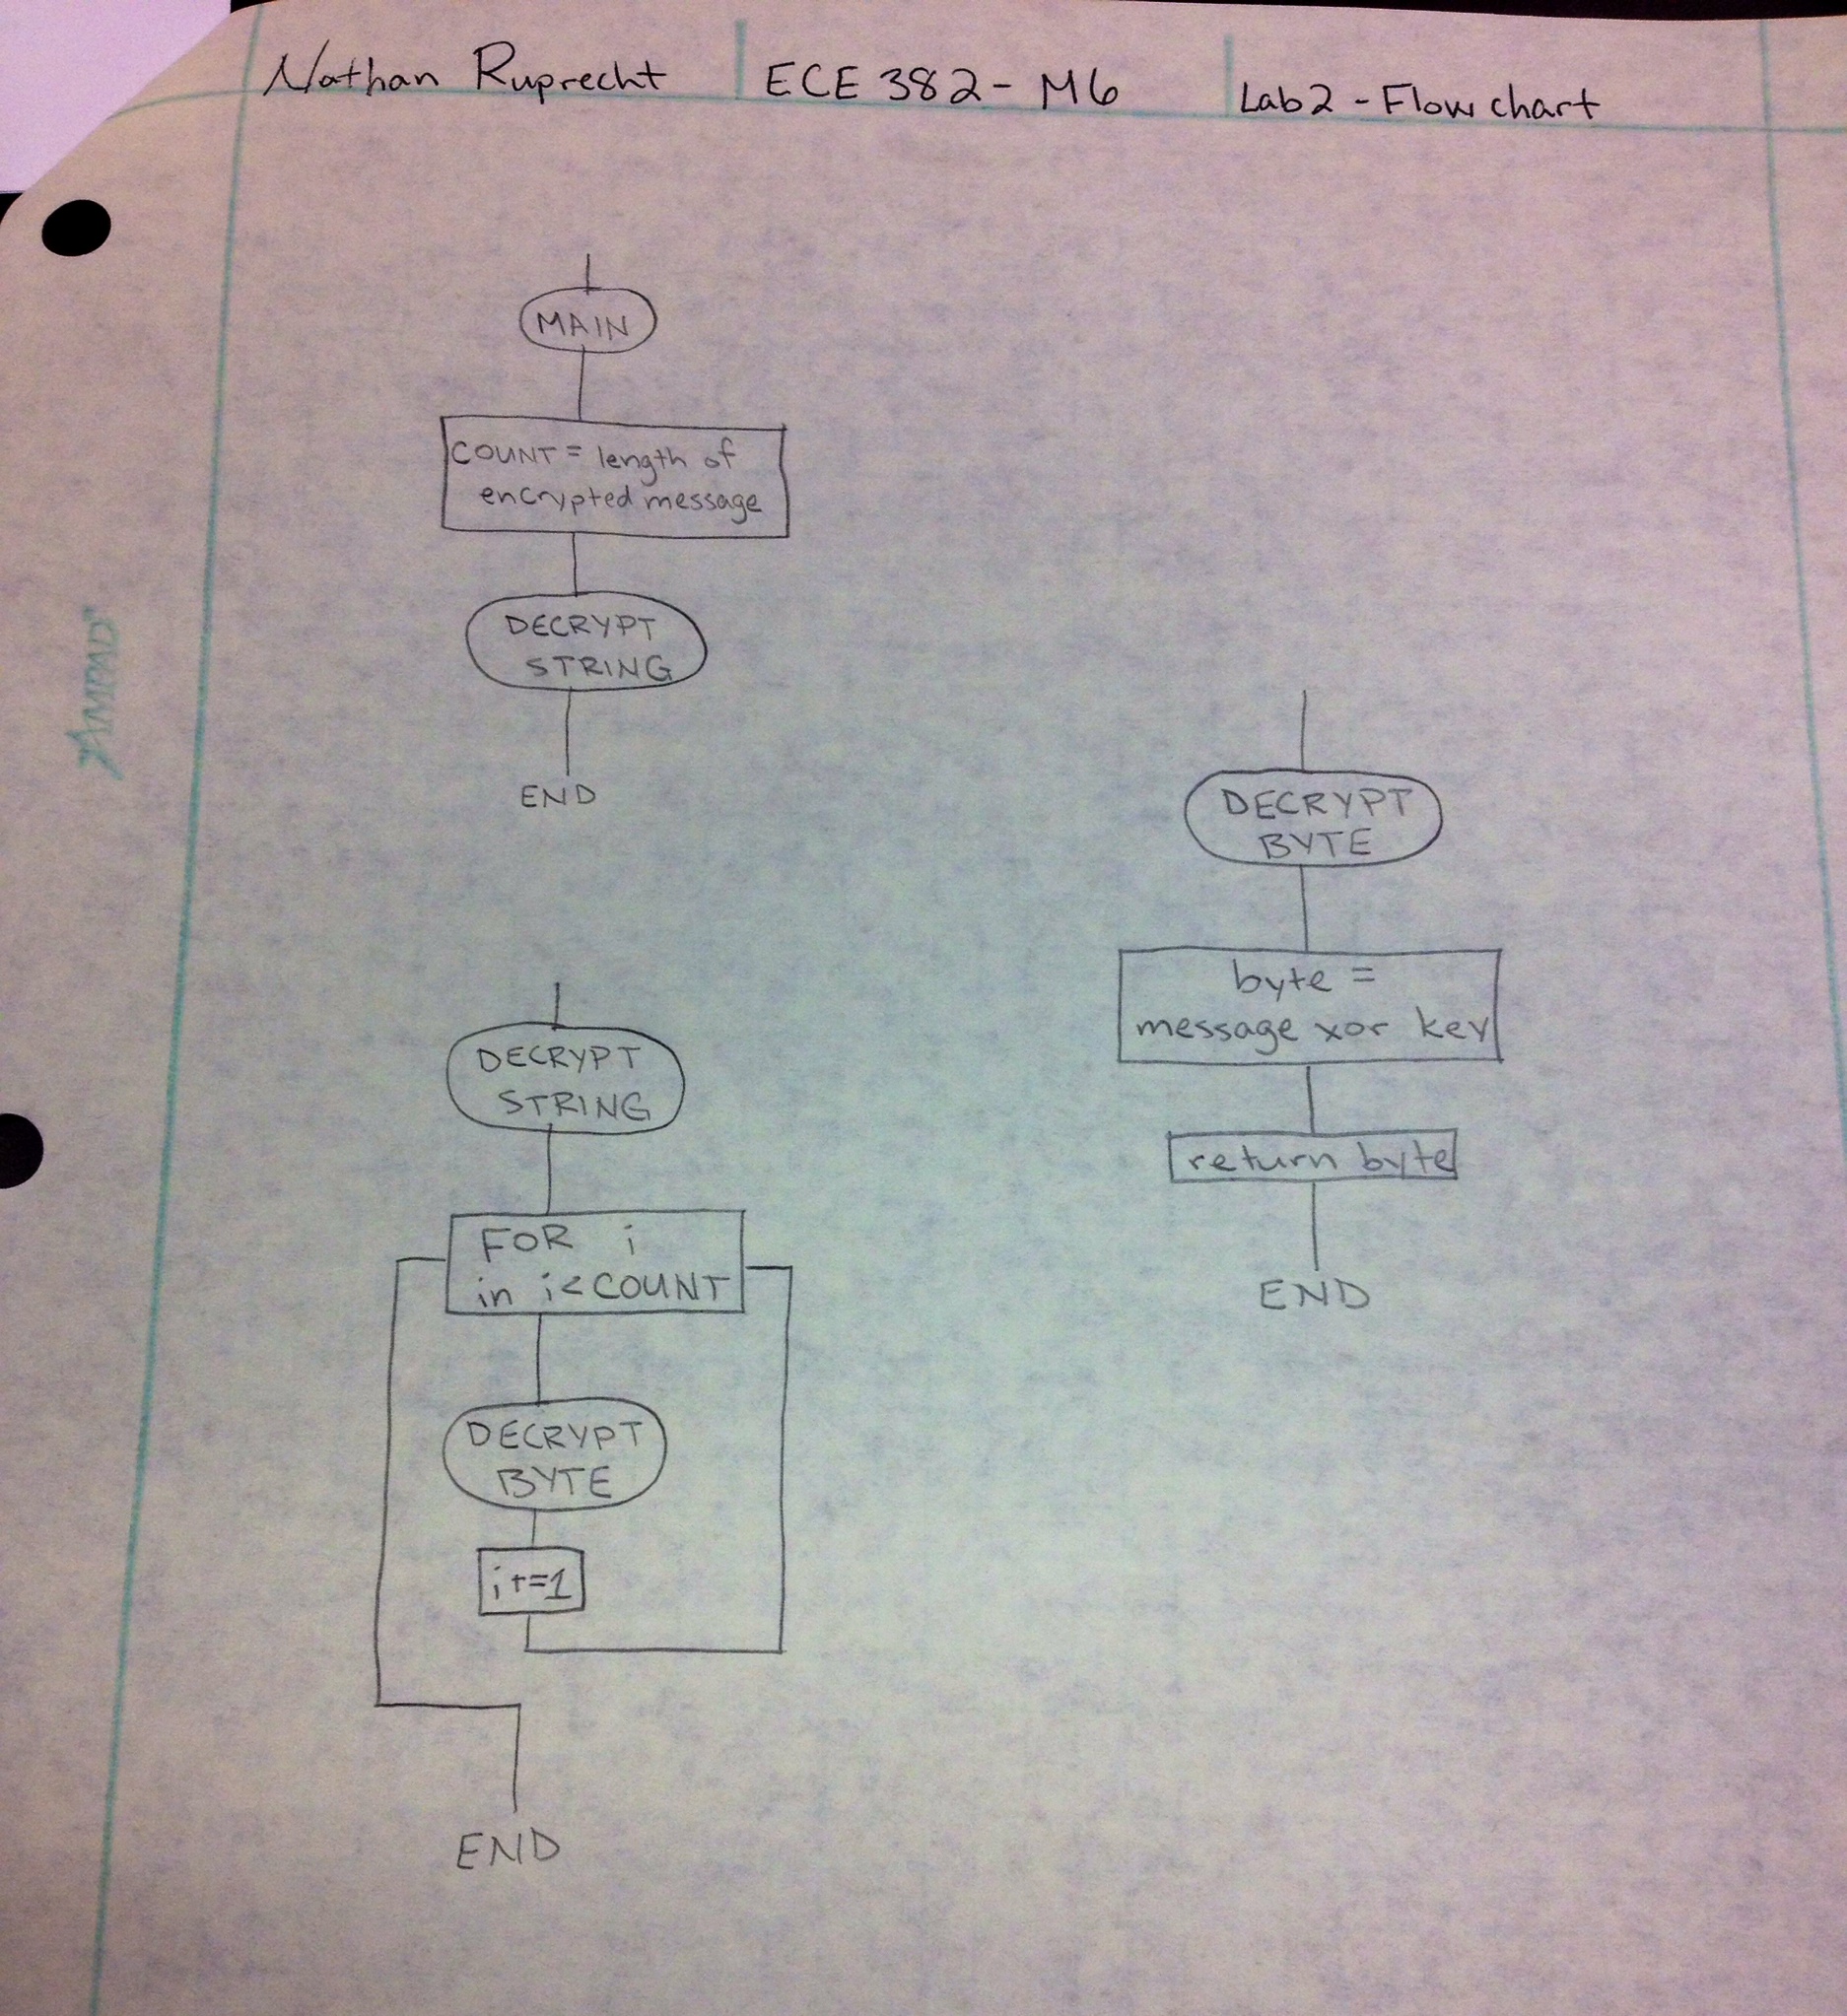 Nathan Ruprecht
ECE 382 - M6
Lab 2 - Flow chart
MAIN
COUNT = length of
encrypted message
DECRYPT
STRING
END
DECRYPT
STRING
FOR i
in i < COUNT
DECRYPT
BYTE
i += 1
END
DECRYPT
BYTE
byte =
message xor key
return byte
END
AMPAD